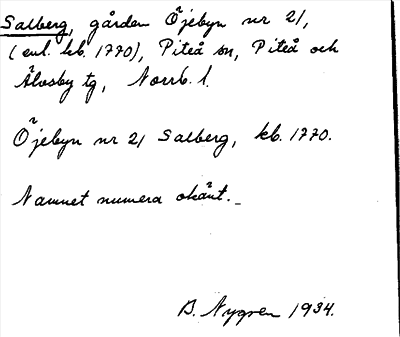 Salberg, gården Öjebyn nr 21,
(enl. kb. 1770), Piteå sn, Piteå och
Älvsby tg, Norrb. l.
Öjebyn nr 21 Salberg, kb. 1770.
Namnet numera okänt._
B. Nygren 1934.